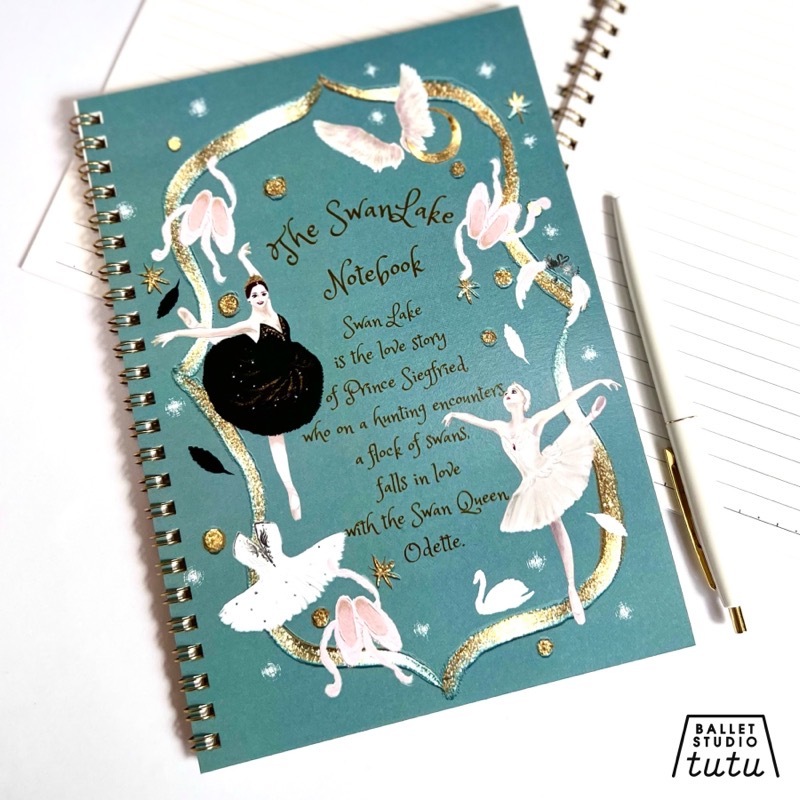 The SwanLake
Notebook
Swan Lake
is the love story
of Prince Siegfried,
who on a hunting encounters
a flock of swans,
falls in love
with the Swan Queen
Odette.
BALLET
STUDIO
tutu